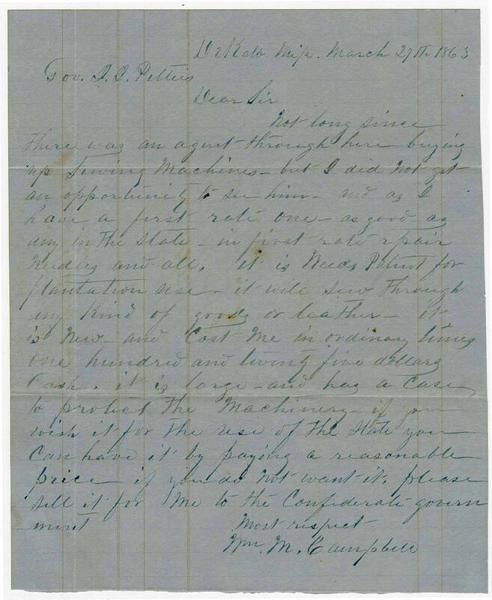 DeKalb Miss. March 29th 1863
Gov. J. J. Pettus
Dear Sir
Not long since
there was an agent through here buying
up Sewing Machines - but I did not get
an opportunity to see him - and as I
have a first rate one - as good as
any in the State - in first rate repair
Needles and all. it is Weeds Patent for
plantation use - it will sew through
any kind of goods or leather - it
is New - and Cost Me in ordinary times
one hundred and twenty five dollars
Cash. it is large - and has a case
to protect the Machinery - if you
wish it for the use of the State you
can have it by paying a reasonable
price if you do not want it, please
sell it for Me to the Confederate govern
ment
Most respect
Wm. M. Campbell